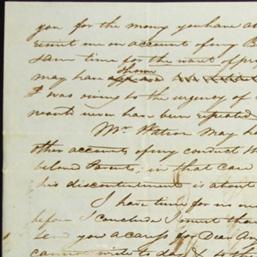 you for the money you have a
remit me on account of my B
same time for the want of pr
may have shown
I was owing to the urgency of
would never have been repeated
Mr. may ha
other accounts of my conduct
beloved Parent, in that case
his discontinument is about
I have time for no m
before I conclude I must than
send you a caress for Dear An
cannot write to day & to the